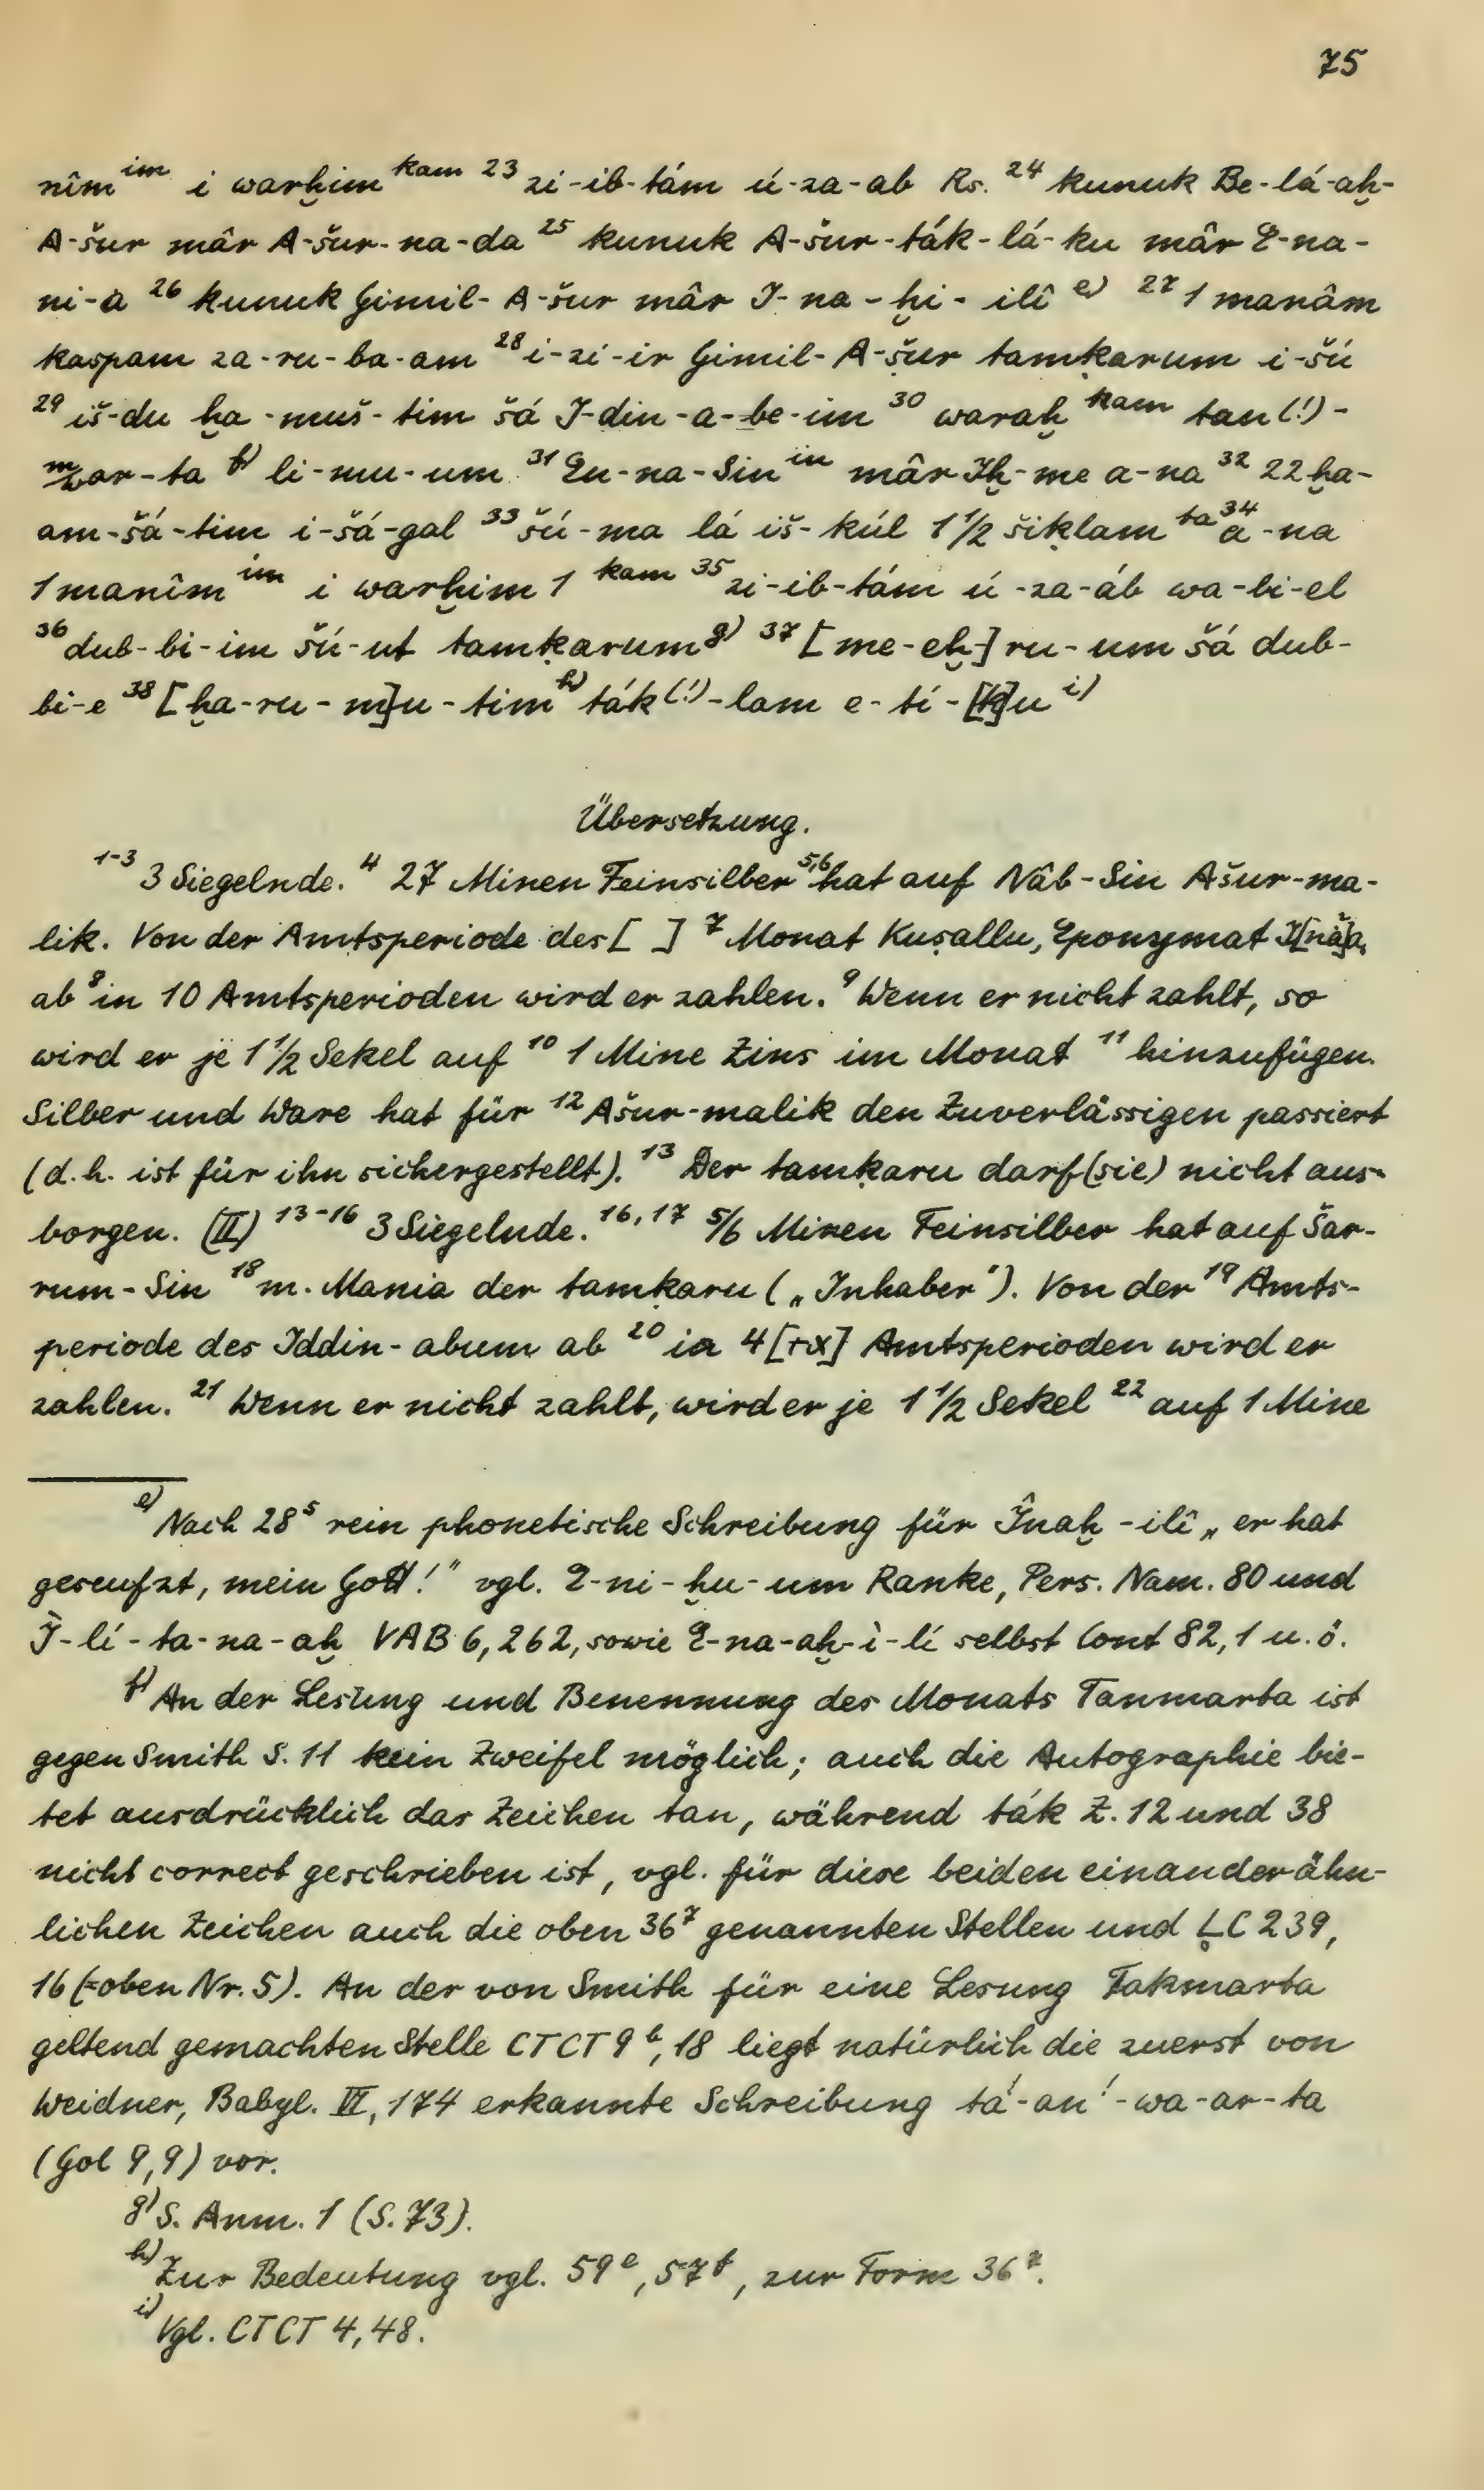 75
nîm^im i warḫim^kam 23 zi-ib-tám ú-za-ab Rs. 24 kunuk Be-lá-aḫ-
A-šur mâr A-šur-na-da 25 kunuk A-šur-ták-lá-ku mâr E-na-
ni-a 26 kunuk Gimil-A-šur mâr I-na-ḫi-ilî e) 27 1 manâm
kaspam za-ru-ba-am 28 i-zí-ir Gimil-A-šur tamḳarum i-šú
29 iš-du ḫa-muš-tim šá I-din-a-be-im 30 waraḫ^kam tan(!)-
mar-ta f) li-mu-um 31 En-na-Sin^in mâr Iḫ-me a-na 32 22 ḫa-
am-šá-tim i-šá-gal 33 šú-ma lá iš-kúl 1 1/2 šiḳlam^ta 34 a-na
1 manîm^im i warḫim 1^kam 35 zi-ib-tám ú-za-áb wa-bi-el
36 dub-bi-im šú-ut tamḳarum g) 37 [me-eḫ-]ru-um šá dub-
bi-e 38 [ḫa-ru-m]u-tim h) ták(!)-lam e-tí-[ḳ]u i)
Übersetzung.
1-3 3 Siegelnde. 4 27 Minen Feinsilber 5,6 hat auf Nâb-Sin Ašur-ma-
lik. Von der Amtsperiode des [ ] 7 Monat Kuṣallu, Eponymat I[nâ]a,
ab 8 in 10 Amtsperioden wird er zahlen. 9 Wenn er nicht zahlt, so
wird er je 1 1/2 Sekel auf 10 1 Mine Zins im Monat 11 hinzufügen.
Silber und Ware hat für 12 Ašur-malik den Zuverlässigen passiert
(d.h. ist für ihn sichergestellt). 13 Der tamḳaru darf (sie) nicht aus-
borgen. (II) 13-16 3 Siegelnde. 16,17 5/6 Minen Feinsilber hat auf Šar-
rum-Sin 18 m. Mania der tamḳaru („Inhaber“). Von der 19 Amts-
periode des Iddin-abum ab 20 in 4[+x] Amtsperioden wird er
zahlen. 21 Wenn er nicht zahlt, wird er je 1 1/2 Sekel 22 auf 1 Mine
e) Nach 28⁵ rein phonetische Schreibung für Înaḫ-ilî „er hat
geseufzt, mein Gott!“ vgl. E-ni-ḫu-um Ranke, Pers. Nam. 80 und
Ì-lí-ta-na-aḫ VAB 6, 262, sowie E-na-aḫ-ì-lí selbst Cont 82,1 u.ö.
f) An der Lesung und Benennung des Monats Tanmarta ist
gegen Smith S. 11 kein Zweifel möglich; auch die Autographie bie-
tet ausdrücklich das Zeichen tan, während ták Z. 12 und 38
nicht correct geschrieben ist, vgl. für diese beiden einander ähn-
lichen Zeichen auch die oben 36⁷ genannten Stellen und LC 239,
16 (=oben Nr. 5). An der von Smith für eine Lesung Takmarta
geltend gemachten Stelle CTCT 9^b, 18 liegt natürlich die zuerst von
Weidner, Babyl. VI, 174 erkannte Schreibung tá!-an!-wa-ar-ta
(Gol 9,9) vor.
g) S. Anm. 1 (S. 73).
h) Zur Bedeutung vgl. 59^e, 57^f, zur Form 36⁷.
i) Vgl. CTCT 4, 48.